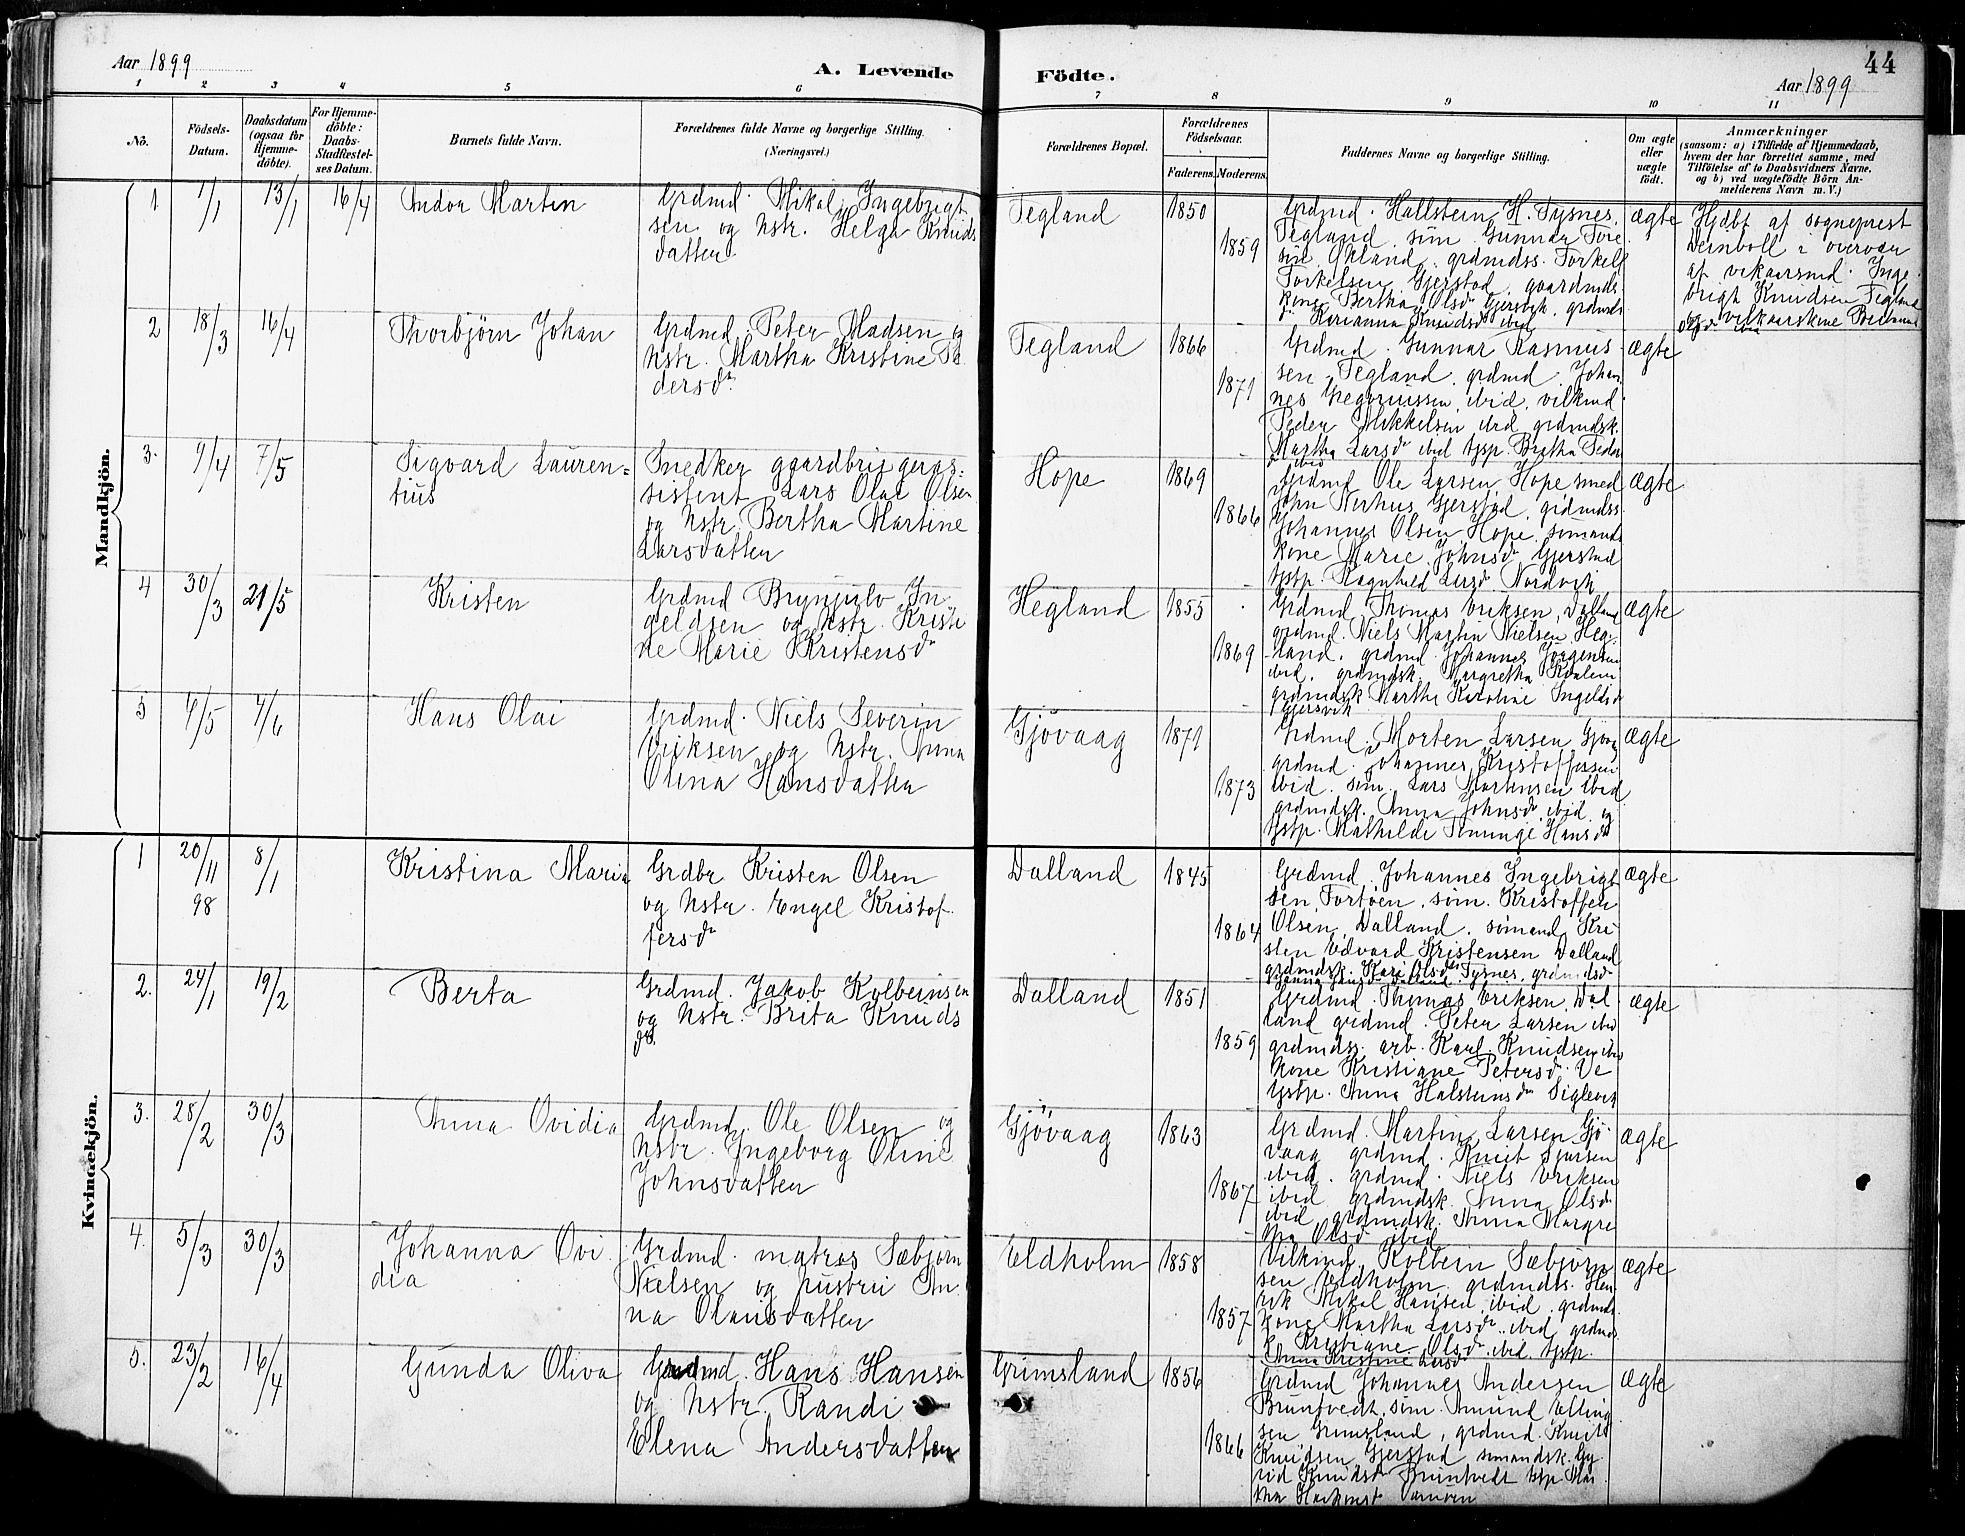 Aar 1899
A. Levende
Födte.
44
Aar 1899
1 2 3 4 5 6 7 8 9 10 11
No.
Födsels-
Datum.
Daabsdatum
(ogsaa for
Hjemme-
döbte).
For Hjemme-
döbte:
Daabs-
Stadfæstel-
ses Datum.
Barnets fulde Navn.
Forældrenes fulde Navne og borgerlige Stilling.
(Næringsvei.)
Forældrenes Bopæl.
Forældrenes
Födselsaar.
Faderens. Moderens.
Faddernes Navne og borgerlige Stilling.
Om ægte
eller
uægte
födt.
Anmærkninger
(saasom: a) i Tilfælde af Hjemmedaab,
hvem der har forrettet samme, med
Tilföielse af to Daabsvidners Navne,
og b) ved uægtefödte Börn An-
melderens Navn m. V.)
Mandkjön.
1 1/1 13/1 16/4 Andor Martin
Grdmd. Mikal Ingebrigt
sen og hstr. Helga Knuds
datter
Tegland 1850
1859
Grdmd. Hallstein H. Tysnes,
Tegland, söm. Gunnar Tore
sen Økland, grdmdss. Torkell
Torkelsen Gjerstad, gaardmds
kone Bertha Olsdr Gjersvik, grdmds
dr Karianna Knudsdr ibid
ægte
Hjdbt af sogneprest
Dernboll i overvær
af vikaarsmd. Inge
brigt Knudsen Tegland
og vilkaarskone Brithanna
Olsdr ibid
2 18/3 16/4 Thorbjörn Johan
Grdmd. Peter Madsen og
hstr. Martha Kristine Pe
dersdr
Tegland 1866
1871
Grdmd. Gunnar Rasmus
sen Tegland, grdmd. Johan
nes Gregoriussen, ibid, vilkmd
Peder Mikkelsen ibid, grdmdsk.
Martha Larsdr ibid tjstp. Britha Peder
dr ibid
ægte
3. 9/4 7/5 Sigvard Lauren=
tius
Snedker gaardbrugeras=
sistent Lars Olai Olsen
og hstr. Bertha Martine
Larsdatter
Hope 1869
1866
Grdmd Ole Larsen Hope smed
John Nerhus Gjerstad, grdmdss.
Johannes Olsen Hope, sömands
kone Marie Johnsdr Gjerstad
tjstp. Ragnhild Larsdr Nordvik
ægte
4 30/3 21/5 Kristen
Grdmd Brynjulv In
geldsen og hstr. Kristi
ne Marie Kristensdr
Hegland 1855
1869
Grdmd. Thomas Eriksen, Dalland
grdmd. Niels Martin Nielsen Heg
land, grdmd. Johannes Jörgensen
ibid, grdmdsk. Margretha Kvalem
grdmdsk Martha Karoline Ingeldsdr
Gjersvik
ægte
5 4/5 4/6 Hans Olai
Grdmd. Niels Severin
Eriksen og hstr. Anna
Olena Hansdatter
Gjövaag 1871
1873
Grdmd. Morten Larsen Gjövg
grdmd. Johannes Kristoffersen
ibid. söm. Lars Martinsen ibid
grdmdsk. Anna Johnsdr ibid. og
tjstp. Mathilde Hansdr
ægte
Kvindekjön.
1 20/11 98 8/1 Kristina Maria
Grdbr Kristen Olsen
og hstr. Engel Kristof
fersdr
Dalland 1845
1864
Grdmd. Johannes Ingebrigt
sen, Fortöen, söm. Kristoffer
Olsen Dalland, sömand Kri
sten Edvard Kristensen Dalland
grdmdsk. Kari Olsdr Tysnes, grdmdsdr
ægte
2. 24/1 19/2 Berta
Grdmd. Jakob Kolbeinsen
og hstr. Brita Knuds
dr.
Dalland 1851
1859
Grdmd. Thomas Eriksen, Dal
land grdmd. Peter Larsen ibid
grdmdss. arb. Karl Knudsen ibid
kone Kristiane Petersdr Ve
tjstp. Anna Halsteinsdr Siglevik
ægte
3. 28/2 30/3 Anna Ovidia
Grdmd. Ole Olsen og
hstr. Ingeborg Oline
Johnsdatter
Gjövaag 1863
1867
Grdmd. Martin Larsen Gjö
vaag grdmd. Knut Sjursen
ibid, grdmd. Niels Eriksen
ibid grdmdsk. Anna Olsdr
ibid grdmdsk. Anna Margre
tha Olsdr ibid
ægte
4. 5/3 30/3 Johanna Ovi
dia
Grdmd. matros Sæbjörn
Nielsen og hustru An
na Olausdatter
Eldholm 1858
1857
Vilkmd. Kolbein Sæbjörn
sen Eldholm, grdmdss. Hen
rik Mikal Hansen ibid. grdmds
kone Martha Larsdr ibid, grdmds
k Kristiane Olsdr ibid. tjstp.
Anna Kristine Larsdr
ægte
5. 23/2 16/4 Gunda Oliva
Grdmd. Hans Hansen
og hstr Randi
Elena Andersdatter
Grimsland 1856
1866
Grdmd Johannes Andersen
Bruntvedt, söm. Amund Elling
sen Grimsland, grdmd. Knut
Knudsen Gjerstad sömandsk. Gu
rid Knudsdr Bruntvedt tjstp Mar
tha
ægte